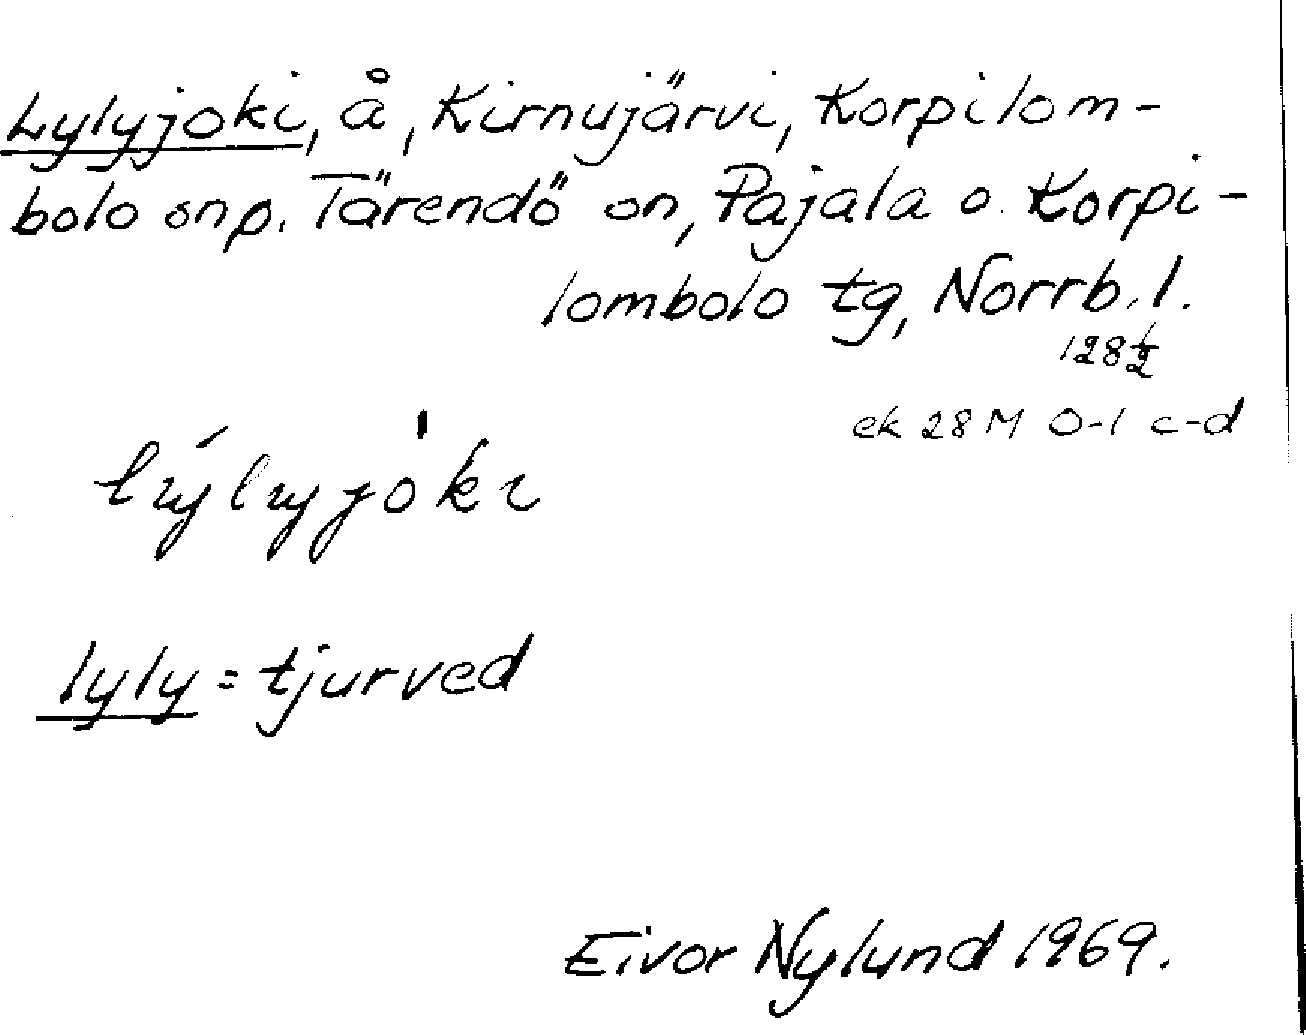 Lylyjoki, å, Kirnujärvi, Korpilom-
bolo snp. Tärendö sn, Pajala o. Korpi-
lombolo tg, Norrb. l.
128½
ek 28 M 0-1 c-d
lýlyjo̍ki
lyly = tjurved
Eivor Nylund 1969.